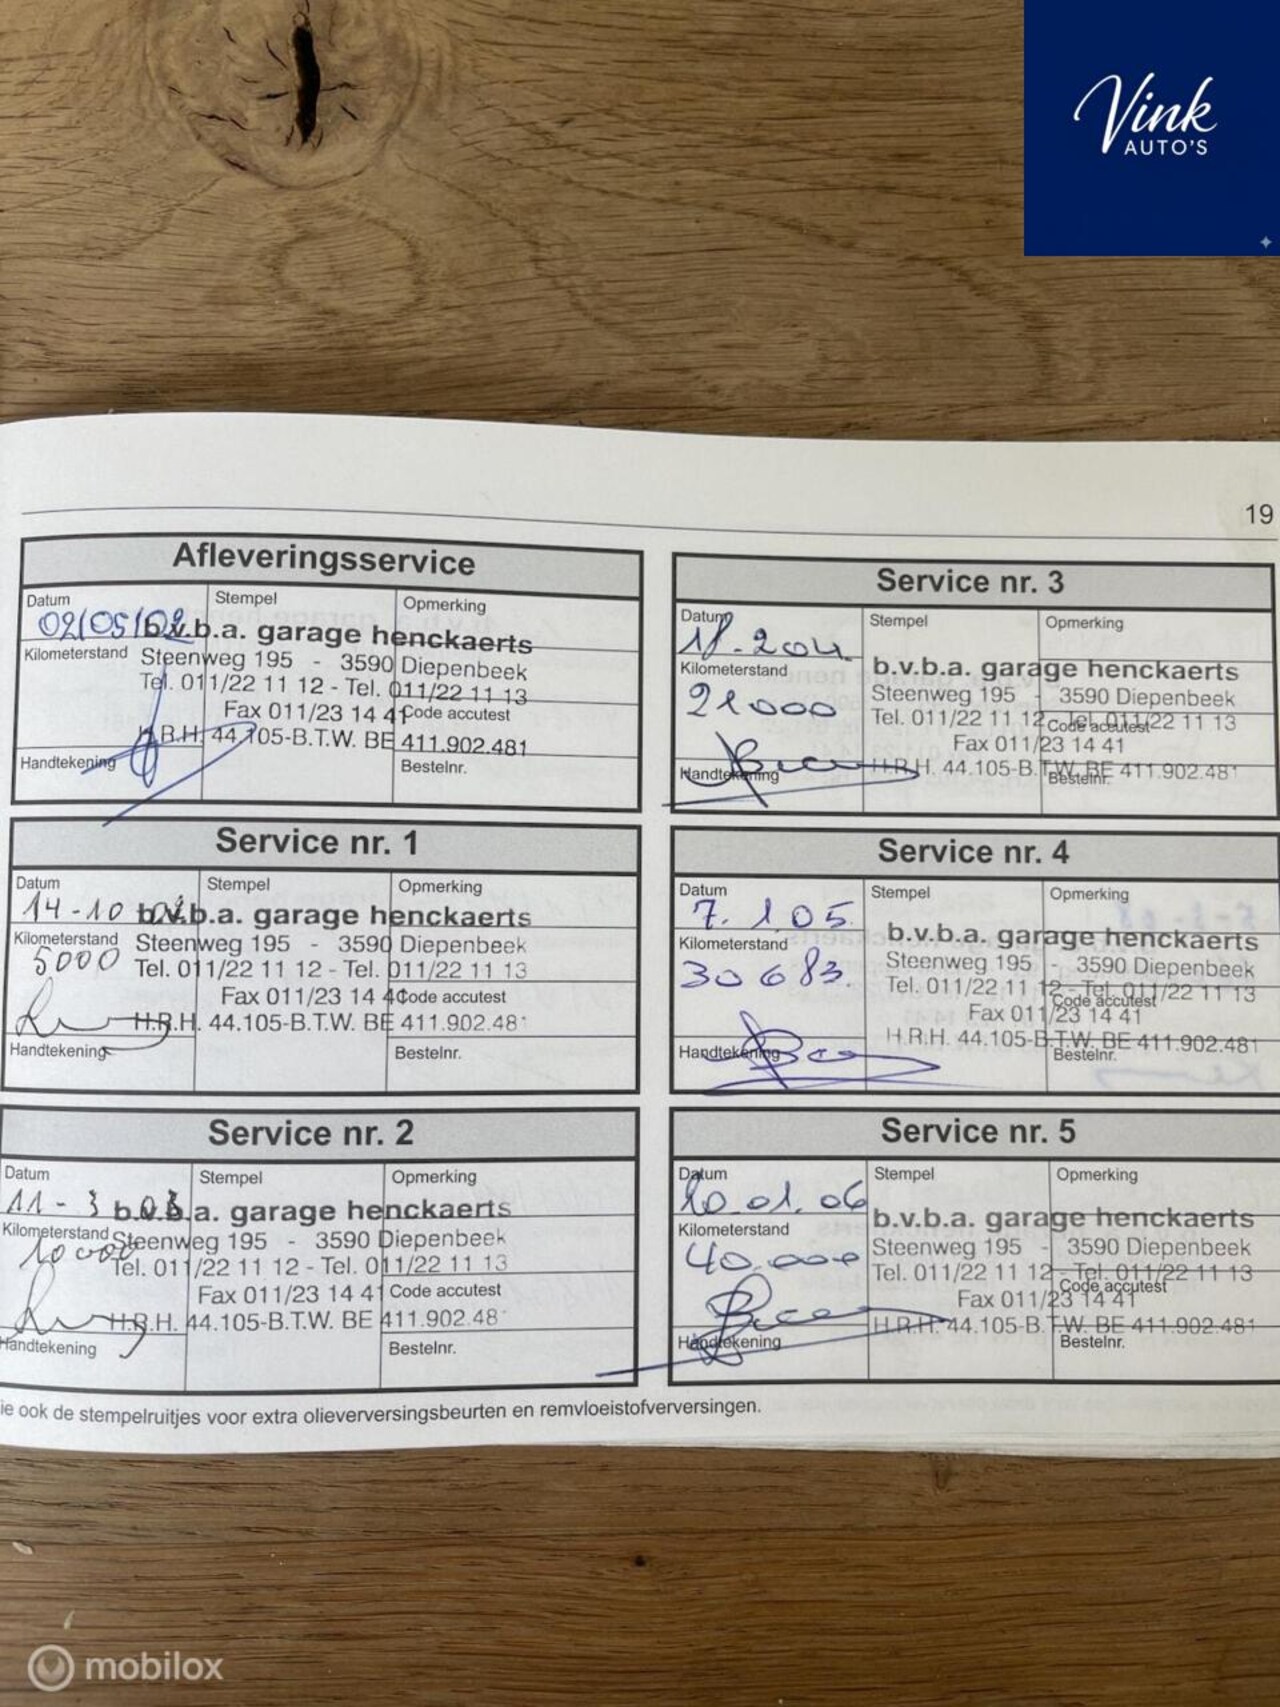 Vink
AUTO'S
19
Afleveringsservice
Datum
02/05/02
Stempel
Opmerking
b.v.b.a. garage henckaerts
Kilometerstand
Steenweg 195 - 3590 Diepenbeek
Tel. 011/22 11 12 - Tel. 011/22 11 13
Fax 011/23 14 41
Code accutest
H.R.H. 44.105-B.T.W. BE 411.902.481
Handtekening
Bestelnr.
Service nr. 1
Datum
14-10 02
Stempel
Opmerking
b.v.b.a. garage henckaerts
Kilometerstand
5000
Steenweg 195 - 3590 Diepenbeek
Tel. 011/22 11 12 - Tel. 011/22 11 13
Fax 011/23 14 4
Code accutest
H.R.H. 44.105-B.T.W. BE 411.902.48
Handtekening
Bestelnr.
Service nr. 2
Datum
11-3 03
Stempel
Opmerking
b.v.b.a. garage henckaerts
Kilometerstand
10000
Steenweg 195 - 3590 Diepenbeek
Tel. 011/22 11 12 - Tel. 011/22 11 13
Fax 011/23 14 41
Code accutest
H.R.H. 44.105-B.T.W. BE 411.902.48
Handtekening
Bestelnr.
Service nr. 3
Datum
Stempel
Opmerking
Kilometerstand
21000
b.v.b.a. garage henckaerts
Steenweg 195 - 3590 Diepenbeek
Tel. 011/22 11 12 - Tel. 011/22 11 13
Code accutest
Fax 011/23 14 41
H.R.H. 44.105-B.T.W. BE 411.902.481
Handtekening
Bestelnr.
Service nr. 4
Datum
7. 1.05.
Stempel
Opmerking
Kilometerstand
30683.
b.v.b.a. garage henckaerts
Steenweg 195 - 3590 Diepenbeek
Tel. 011/22 11 12 - Tel. 011/22 11 13
Code accutest
Fax 011/23 14 41
H.R.H. 44.105-B.T.W. BE 411.902.481
Handtekening
Bestelnr.
Service nr. 5
Datum
10.01.06
Stempel
Opmerking
Kilometerstand
40.000
b.v.b.a. garage henckaerts
Steenweg 195 - 3590 Diepenbeek
Tel. 011/22 11 12 - Tel. 011/22 11 13
Code accutest
Fax 011/23 14 41
H.R.H. 44.105-B.T.W. BE 411.902.481
Handtekening
Bestelnr.
ie ook de stempelruitjes voor extra olieverversingsbeurten en remvloeistofverversingen.
mobilox